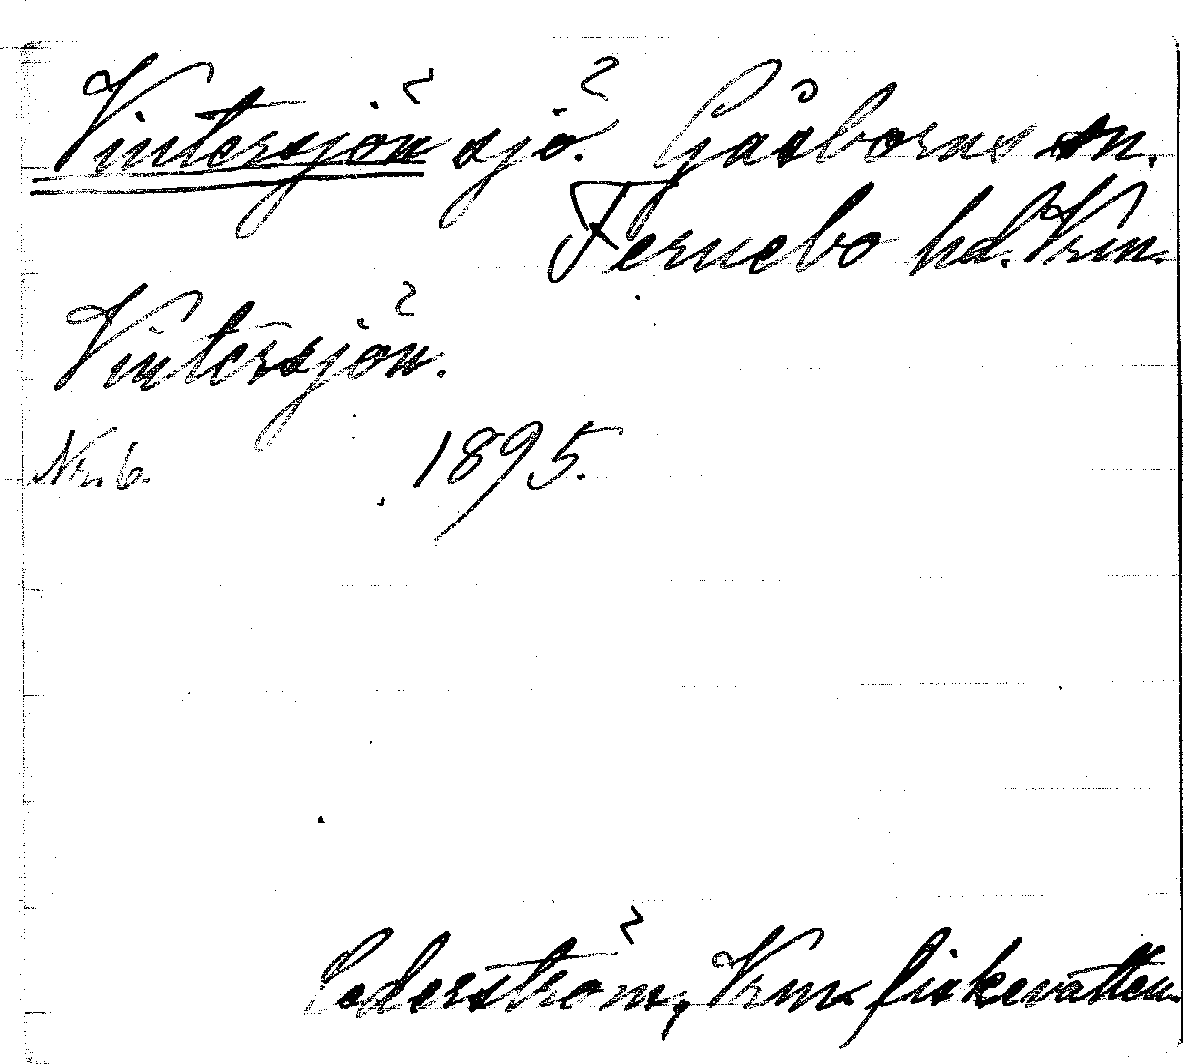 Vintersjön sjö. Gåsborns sn.
Fernebo hd. Vrm.
Vintersjön.
Nr. 6. 1895.
Cederström, Vrms fiskevatten.